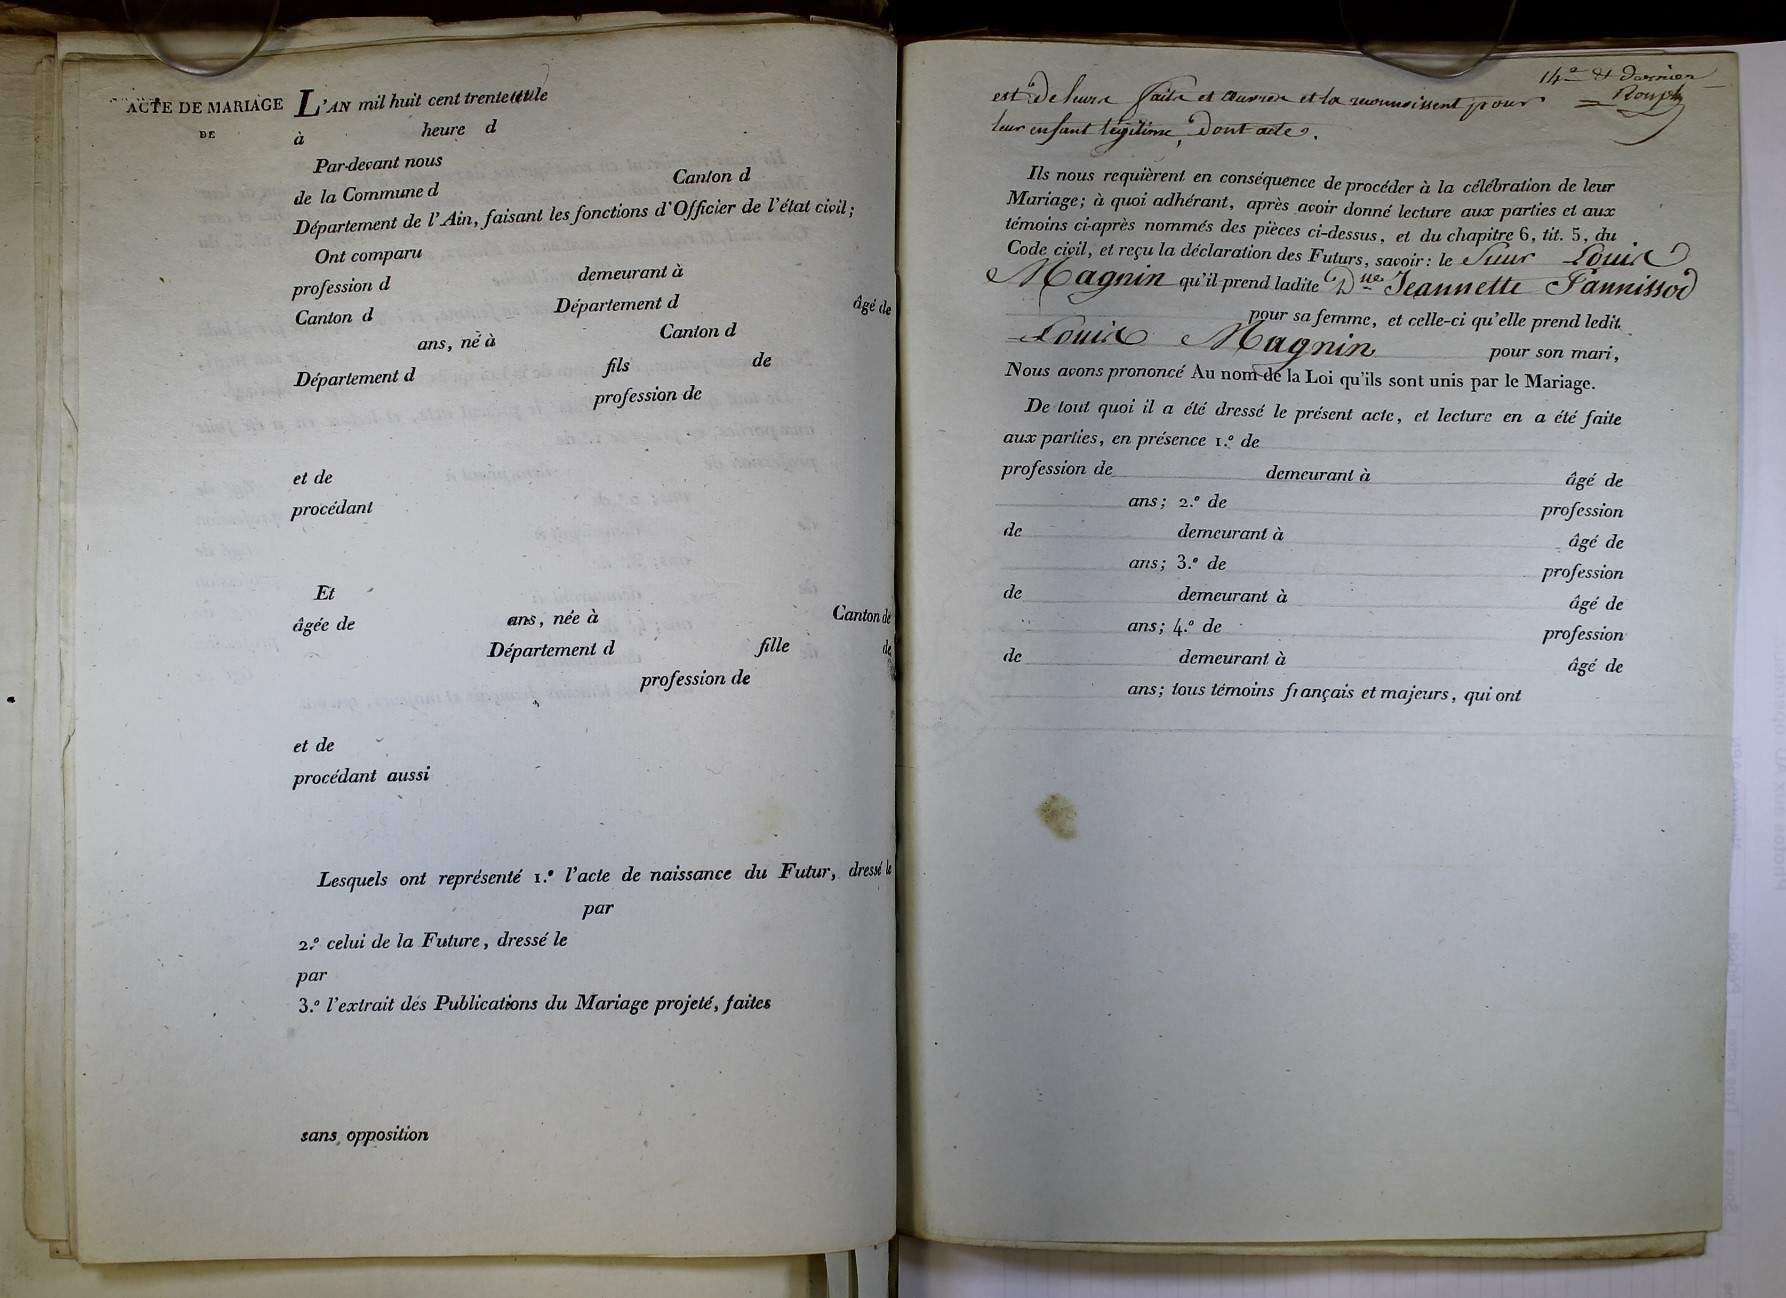 ACTE DE MARIAGE
DE
L'AN mil huit cent trente
à heure d
Par-devant nous
de la Commune d Canton d
Département de l'Ain, faisant les fonctions d'Officier de l'état civil;
Ont comparu
profession d demeurant à
Canton d Département d âgé de
ans, né à Canton d
Département d fils de
profession de
et de
procédant
Et
âgée de ans, née à Canton de
Département d fille de
profession de
et de
procédant aussi
Lesquels ont représenté 1.º l'acte de naissance du Futur, dressé le
par
2.º celui de la Future, dressé le
par
3.º l'extrait des Publications du Mariage projeté, faites
sans opposition
14e et dernier
est de leurs faits et œuvres et la reconnoissent pour
leur enfant légitime, dont acte.
Ils nous requièrent en conséquence de procéder à la célébration de leur
Mariage; à quoi adhérant, après avoir donné lecture aux parties et aux
témoins ci-après nommés des pièces ci-dessus, et du chapitre 6, tit. 5, du
Code civil, et reçu la déclaration des Futurs, savoir: le Sieur Louis
Magnin qu'il prend ladite Dlle Jeannette Pannissod
pour sa femme, et celle-ci qu'elle prend ledit
Louis Magnin pour son mari,
Nous avons prononcé Au nom de la Loi qu'ils sont unis par le Mariage.
De tout quoi il a été dressé le présent acte, et lecture en a été faite
aux parties, en présence 1.º de
profession de demeurant à âgé de
ans; 2.º de profession
de demeurant à âgé de
ans; 3.º de profession
de demeurant à âgé de
ans; 4.º de profession
de demeurant à âgé de
ans; tous témoins français et majeurs, qui ont